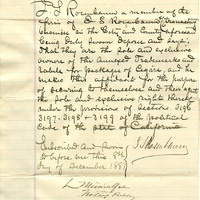 a member of the
firm of
Charles in the City and County aforesaid
being duly sworn deposes and says
That they are the sole and exclusive
owners of the annexed Trademarks and
Labels for packages of Cigars, and he
makes this affidavit for the purpose
of securing to themselves and their
the sole and exclusive right thereto
under the provisions of sections 3196
3197. 3198 & 3199 of the political
Code of the State of California
Subscribed and sworn
to before me this 8th
day of December 188
Notary Public